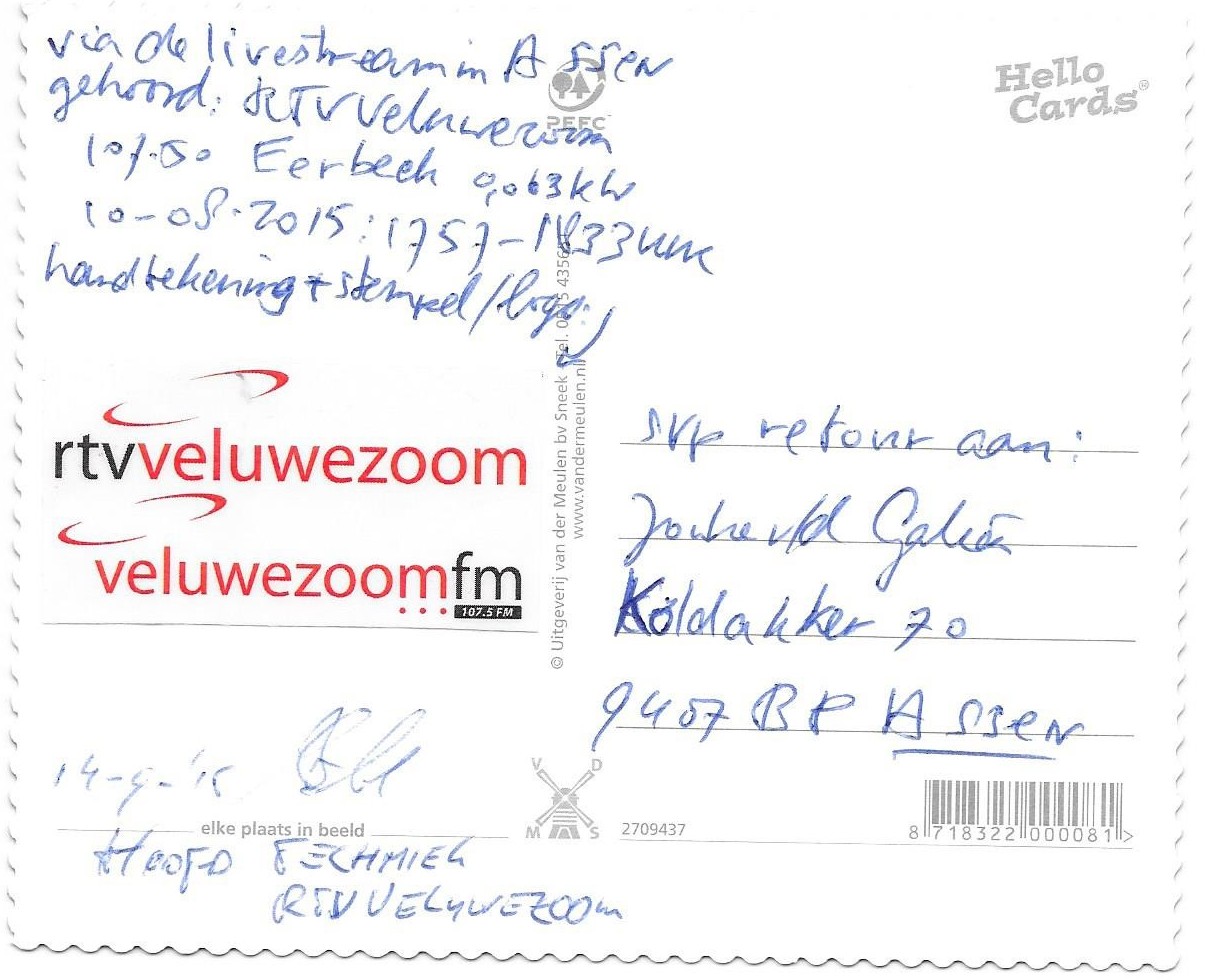 via de livestream in Assen
gehoord: RTV Veluwezoom
107.50 Eerbeek 0,063kW
10-08-2015: 1757-1833 uur
handtekening + stempel/logo:
PEFC
Hello
Cards®
rtvveluwezoom
veluwezoomfm
107.5 FM
© Uitgeverij van der Meulen bv Sneek Tel.
www.vandermeulen.nl
svp retour aan:
v/d
Koldakker 70
9407 BP Assen
14-9-'15
elke plaats in beeld
V D
M S
2709437
8 718322 000081 >
HOOFD TECHNIEK
RTV VELUWEZOOM